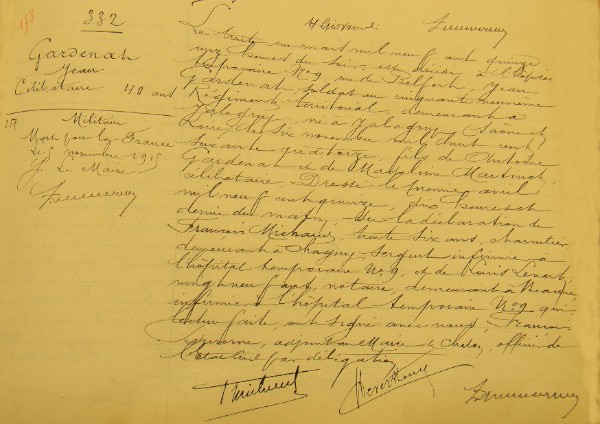 332
Gardenat
Jean
Célibataire 40 ans
Militaire
Mort pour la France
Le novembre 1915
Le Maire
Le trente un mars mil neuf cent quinze
heures du soir, est décédé à l'hôpital
temporaire No 9 rue de Belfort, Jean
Gardenat, soldat au cinquante neuvième
Régiment territorial, demeurant à
né à (Saône et
Loire) le six novembre mil huit cent
soixante quatorze, fils de Antoine
Gardenat et de Madeleine Martinot,
célibataire. Dressé le premier avril
mil neuf cent quinze, dix heures et
demie du matin, sur la déclaration de
Francis Michaud, trente six ans, charcutier
demeurant à Chagny, sergent infirmier à
l'hôpital temporaire No 9, et de Louis
vingt neuf ans, notaire, demeurant à Beaune
infirmier à l'hôpital temporaire No 9 qui,
lecture faite, ont signé avec nous, Francis
adjoint au Maire de Chalon, officier de
l'état civil par délégation